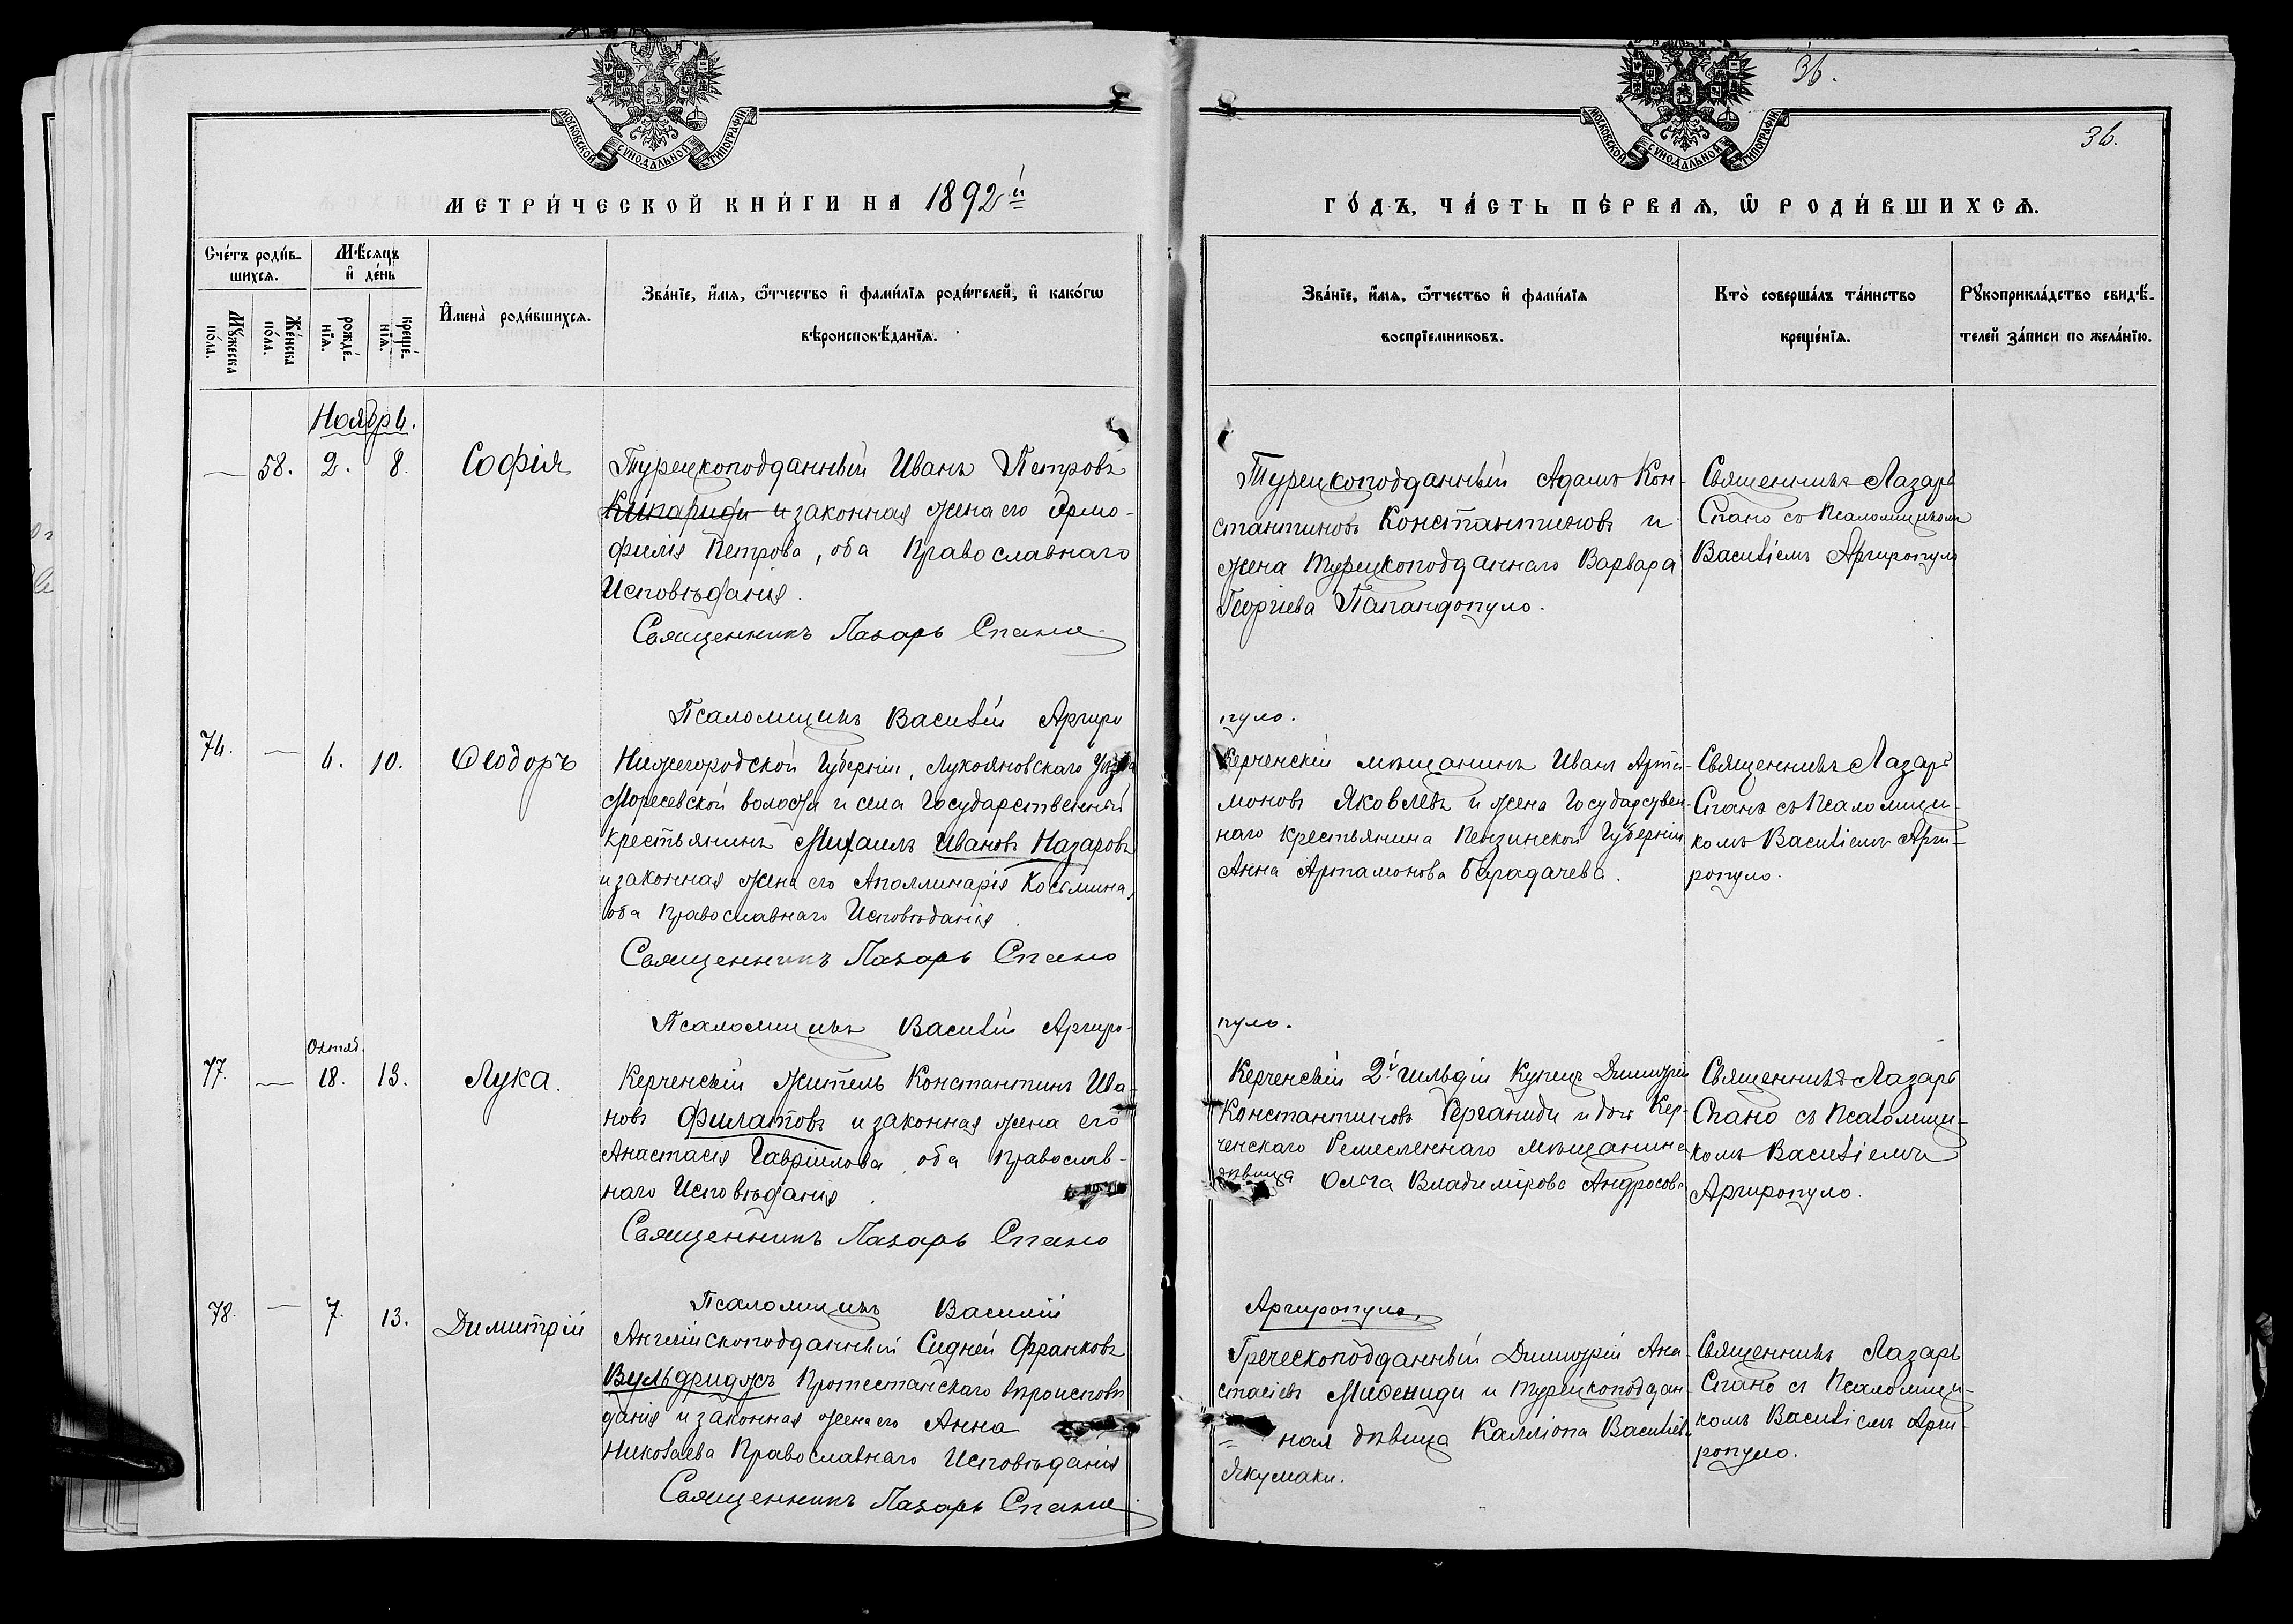 МОСКОВСКОЙ СѴНОДАЛЬНОЙ ТИПОГРАФІИ
МЕТРИ́ЧЕСКОЙ КНИ́ГИ НА 1892й
Сче́тъ роди́в-
шихсѧ.
Мѣ́сѧцъ
и҆ де́нь
Мꙋ́жеска
по́ла.
Же́нска
по́ла.
рожде́-
нїѧ.
креще́-
нїѧ.
И҆мена̀ роди́вшихсѧ.
Зва́нїе, и҆́мѧ, ѻ҆́тчество и҆ фами́лїѧ роди́телей, и҆ како́гѡ
вѣроисповѣ́данїѧ.
Ноябрь.
— 58. 2. 8. Софія
Турецкоподданный Иванъ Петровъ
Кипариди и законная жена его Ермо-
филія Петрова, оба Православнаго
Исповѣданія.
Священникъ Лазарь Спано
Псаломщикъ Василій Аргиро
76. — 6. 10. Ѳеодоръ
Нижегородской Губерніи, Лукояновскаго Уѣзда
волости и села Государственный
крестьянинъ Михаилъ Ивановъ Назаровъ
и законная жена его Аполлинарія Косьмина,
оба Православнаго Исповѣданія
Священникъ Лазарь Спано
Псаломщикъ Василій Аргиро-
77. — Октяб. 18. 13. Лука.
Керченскій житель Константинъ Ива-
новъ Филатовъ и законная жена его
Анастасія Гавріилова, оба Православ-
наго Исповѣданія.
Священникъ Лазарь Спано
Псаломщикъ Василій
78. — 7. 13. Димитрій
Англійскоподданный Сидней Франковъ
Вульдриджъ Протестанскаго вѣроисповѣ
данія и законная жена его Анна
Николаева Православнаго Исповѣданія
Священникъ Лазарь Спано
36.
36.
МОСКОВСКОЙ СѴНОДАЛЬНОЙ ТИПОГРАФІИ
ГО́ДЪ, ЧА́СТЬ ПЕ́РВАѦ, Ѡ҆ РОДИ́ВШИХСѦ.
Зва́нїе, и҆́мѧ, ѻ҆́тчество и҆ фами́лїѧ
воспрїемниковъ.
Кто̀ соверша́лъ та́инство
креще́нїѧ.
Рꙋкоприкла́дство свидѣ́-
телей за́писи по жела́нїю.
Турецкоподданный Адамъ Кон-
стантиновъ Константиновъ и
жена Турецкоподданнаго Варвара
Георгіева Папандопуло.
Священникъ Лазарь
Спано съ Псаломщикомъ
Василіемъ Аргиропуло
пуло.
Керченскій мѣщанинъ Иванъ Арта-
моновъ Яковлевъ и жена Государствен-
наго крестьянина Пензинской Губерніи
Анна Артамонова Барадачева.
Священникъ Лазарь
Спано съ Псаломщи-
комъ Василіемъ Арги-
ропуло.
пуло.
Керченскій 2й гильдіи Купецъ Димитрій
Константиновъ и дочь Кер-
ченскаго Ремесленнаго мѣщанина
дѣвица Ольга Владимірова Андросова
Священникъ Лазарь
Спано съ Псаломщи-
комъ Василіемъ
Аргиропуло.
Аргиропуло,
Греческоподданный Димитрій Ана-
стасіевъ и Турецкоподдан-
= ная дѣвица Калліопа Василіева
Якумаки.
Священникъ Лазарь
Спано съ Псаломщи-
комъ Василіемъ Арги-
ропуло.